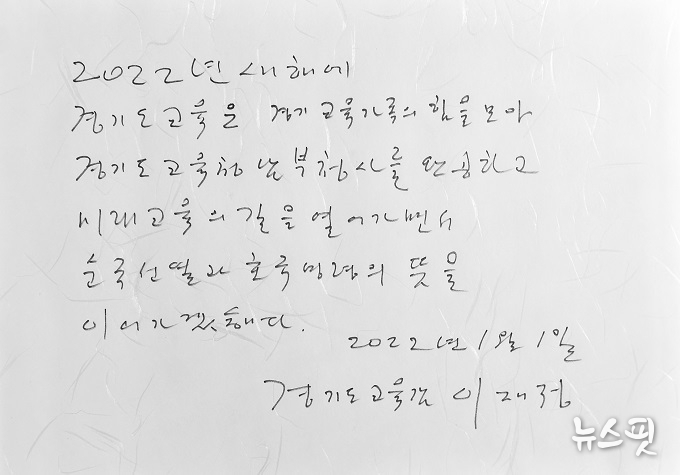 2022년 새해에
경기도교육은 경기교육가족의 힘을 모아
경기도교육청 남부청사를 완공하고
미래교육의 길을 열어가면서
순국선열과 호국영령의 뜻을
이어가겠습니다.
2022년 1월 1일
경기도교육감 이재정
뉴스핏